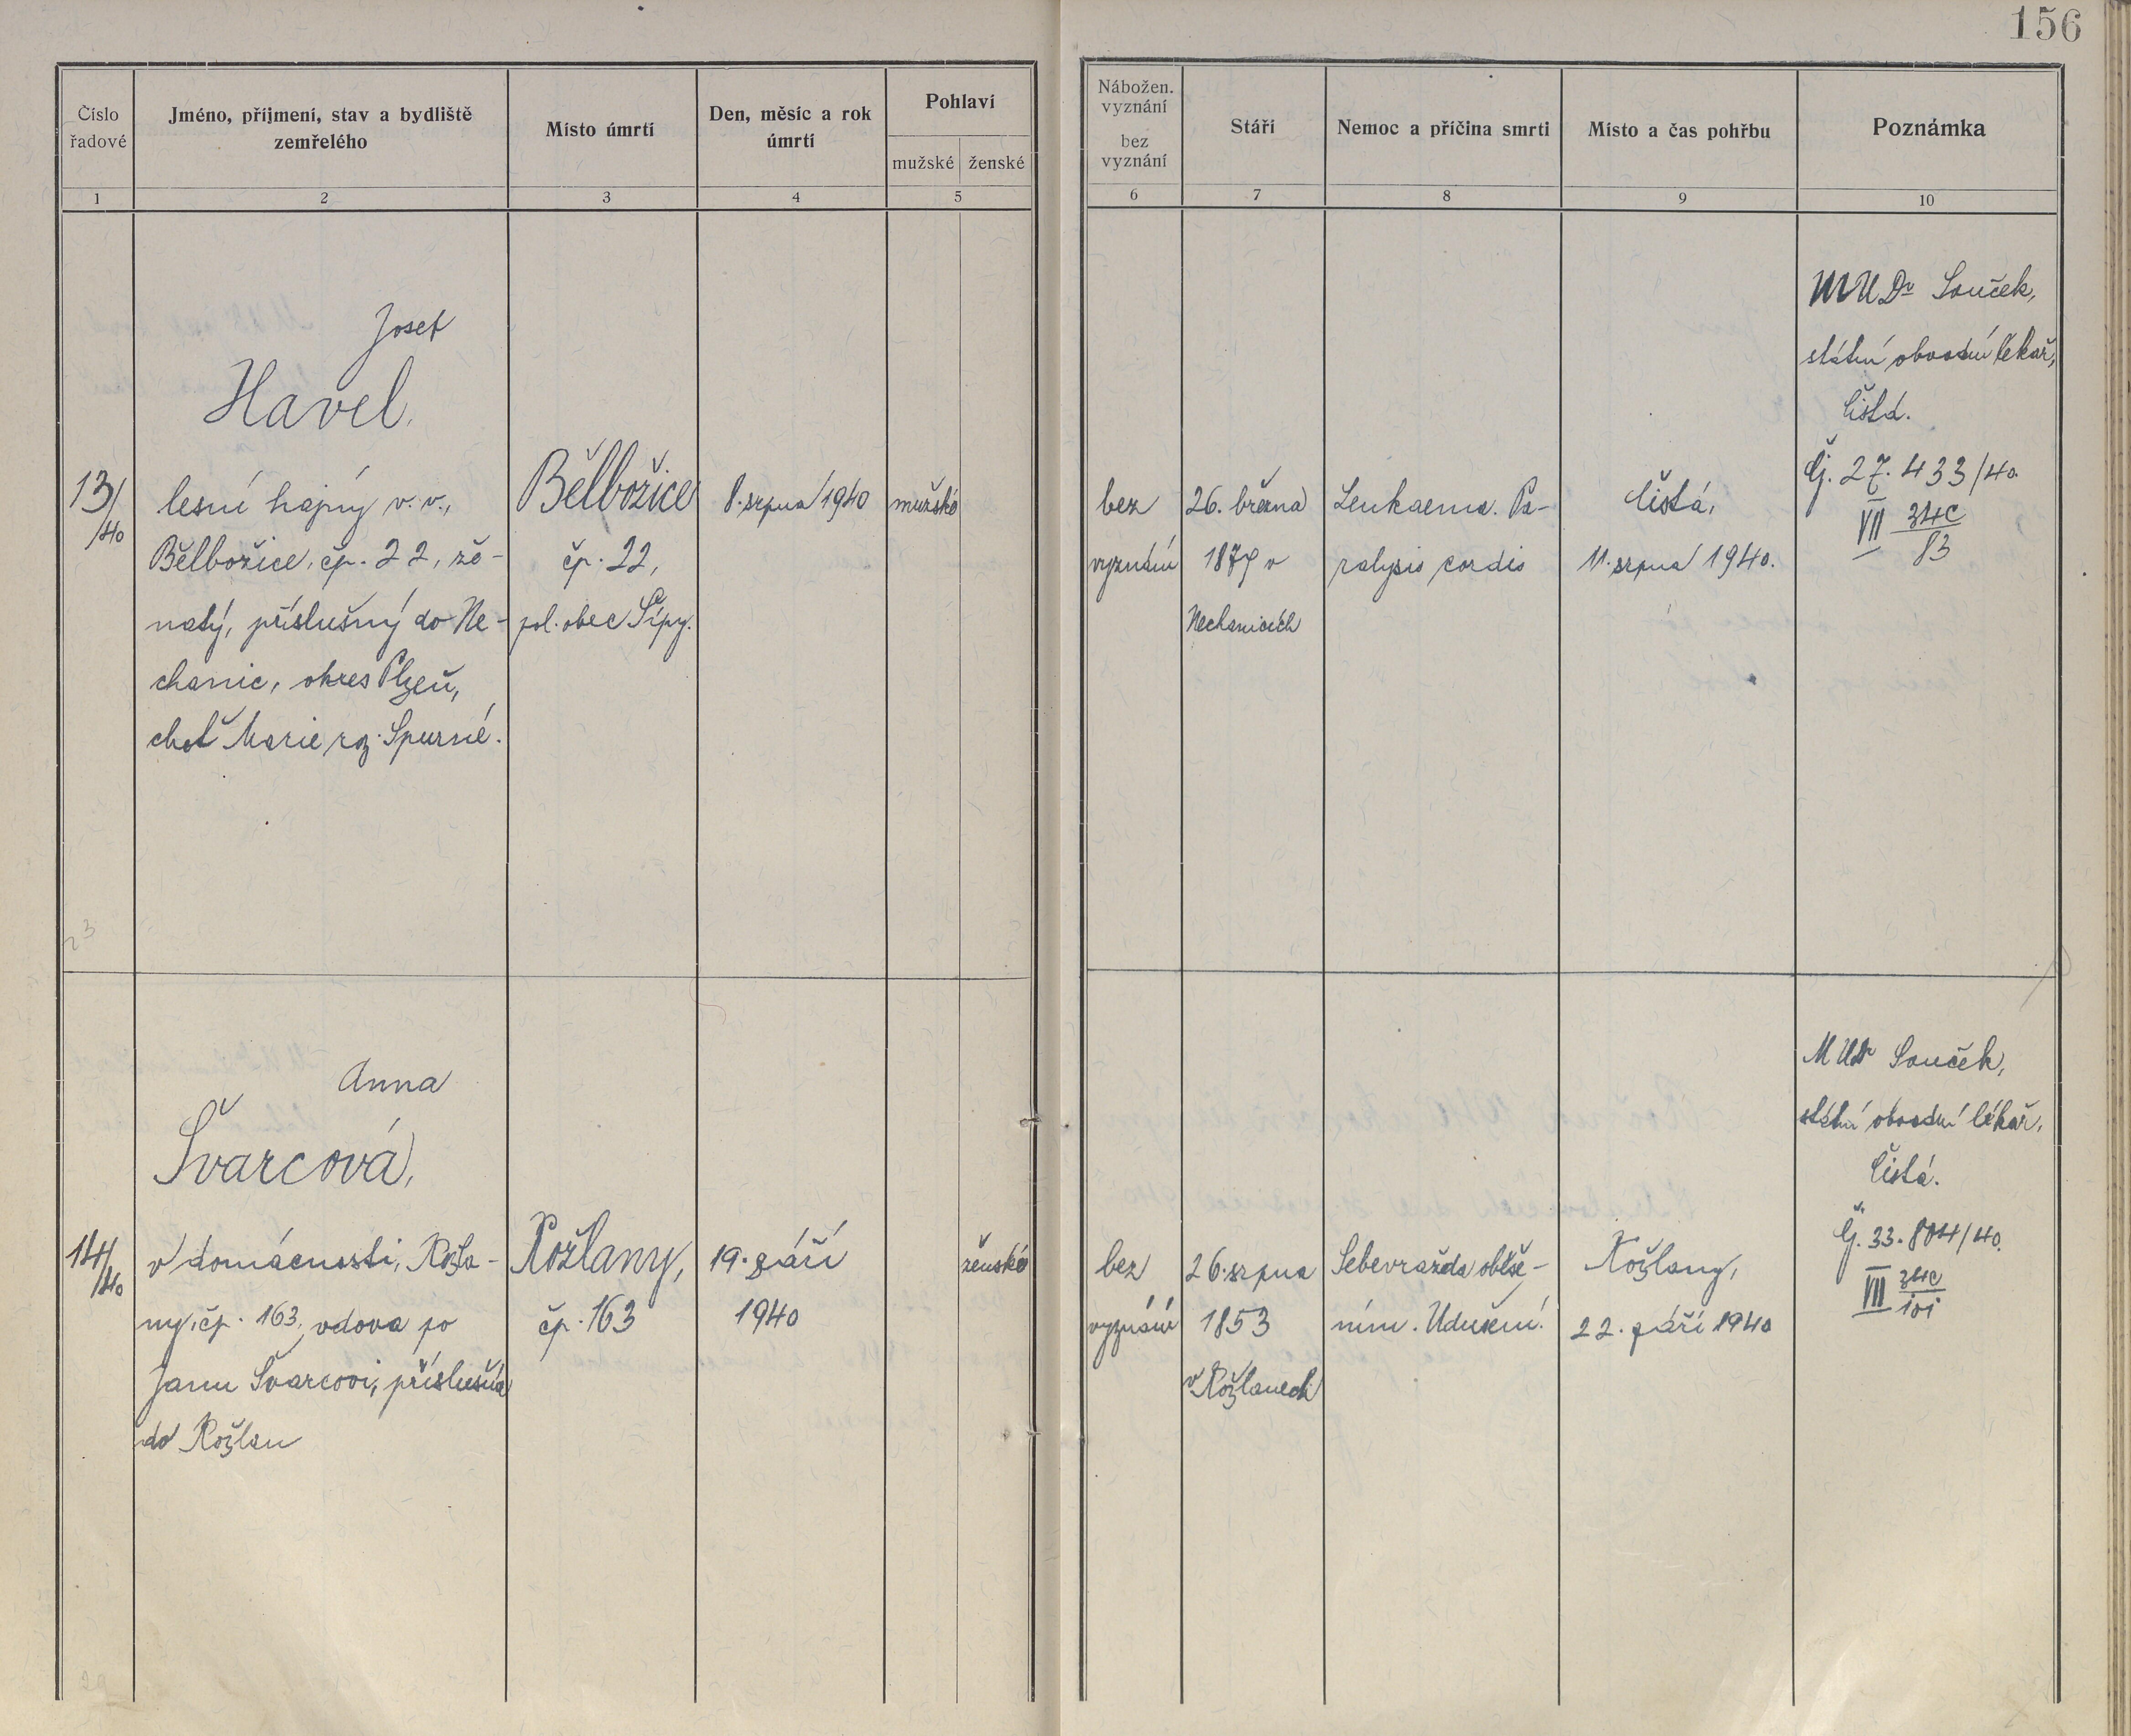 156
Číslo
řadové
Jméno, příjmení, stav a bydliště
zemřelého
Místo úmrtí
Den, měsíc a rok
úmrtí
Pohlaví
mužské
ženské
Nábožen.
vyznání
bez
vyznání
Stáří
Nemoc a příčina smrti
Místo a čas pohřbu
Poznámka
1
2
3
4
5
6
7
8
9
10
13/
/40
Josef
Havel,
lesní hajný v. v.,
Bělbožice, čp. 22, že-
natý, příslušný do Ne-
chanic, okres Plzeň,
choť Marie roz. Spurné.
Bělbožice
čp. 22,
pol. obec Šípy.
8. srpna 1940
mužské
bez
vyznání
26. března
1879 v
Nechanicích
Leukaema. Pa-
ralysis cordis
Čistá,
11. srpna 1940.
MUDr Souček,
státní obvodní lékař,
Čistá.
Čj. 27.433/40.
VII 34c
83
23
14/
/40
Anna
Švarcová,
v domácnosti, Kožla-
ny, čp. 163, vdova po
Janu Švarcovi, příslušná
do Kožlan
Kožlany,
čp. 163
19. září
1940
ženské
bez
vyznání
26. srpna
1853
v Kožlanech
Sebevražda oběše-
ním. Udušení.
Kožlany,
22. září 1940
MUDr Souček,
státní obvodní lékař,
Čistá.
Čj. 33.804/40.
VII 34c
101